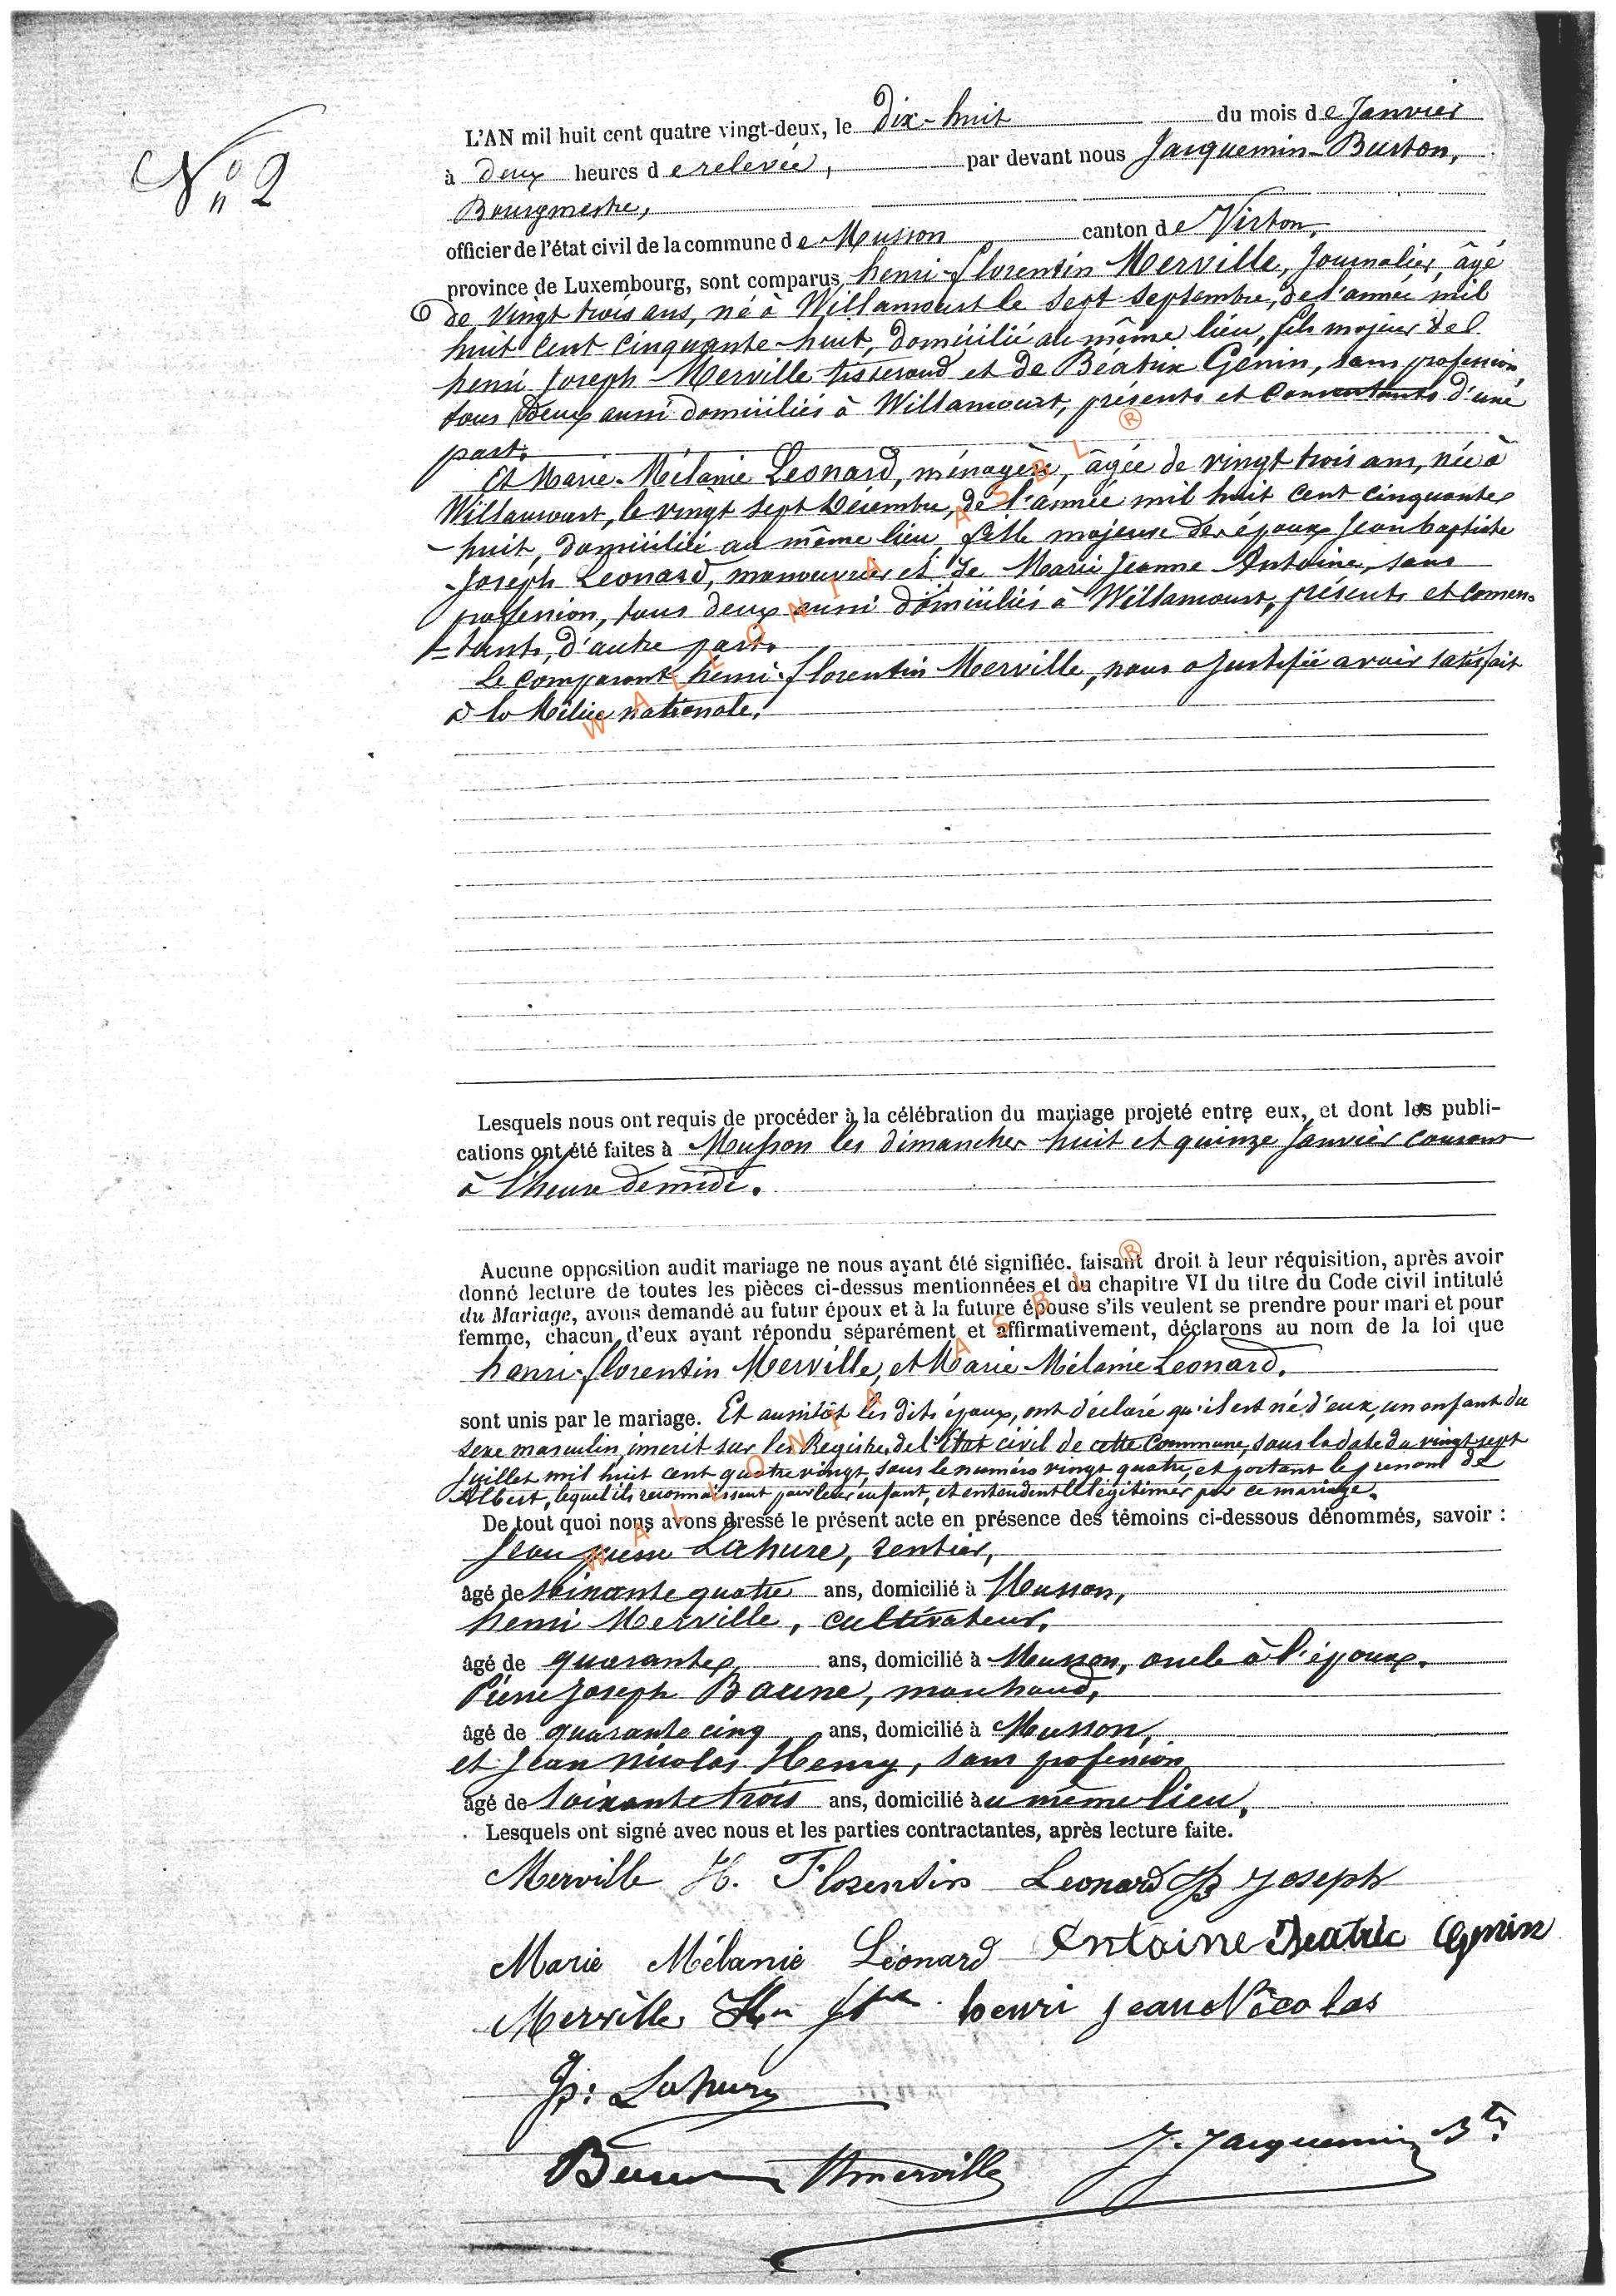 N° 2
L'AN mil huit cent quatre vingt-deux, le dix-huit du mois de Janvier
à deux heures de relevée, par devant nous Jacquemin-Burton,
Bourgmestre,
officier de l'état civil de la commune de Musson canton de Virton,
province de Luxembourg, sont comparus henri-florentin Merville, Journalier, âgé
de vingt trois ans, né à Willancourt le sept septembre, de l'année mil
huit cent cinquante-huit, domicilié au même lieu, fils majeur de
henri Joseph Merville tisserand et de Béatrix Génin, sans profession,
tous deux aussi domiciliés à Willancourt, présents et consentants d'une
part.
Et Marie-Mélanie Leonard, ménagère, âgée de vingt trois ans, née à
Willancourt, le vingt sept Décembre, de l'année mil huit cent cinquante
-huit, domiciliée au même lieu fille majeure des époux Jean baptiste
Joseph Leonard, manouvrier et de Marie Jeanne Antoine, sans
profession, tous deux aussi domiciliés à Willancourt, présents et consen-
-tants, d'autre part.
Le comparant henri-florentin Merville, nous a justifié avoir satisfait
à la Milice nationale.
Lesquels nous ont requis de procéder à la célébration du mariage projeté entre eux, et dont les publi-
cations ont été faites à Musson les dimanches huit et quinze Janvier courant
à l'heure de midi.
Aucune opposition audit mariage ne nous ayant été signifiée. faisant droit à leur réquisition, après avoir
donné lecture de toutes les pièces ci-dessus mentionnées et du chapitre VI du titre du Code civil intitulé
du Mariage, avons demandé au futur époux et à la future épouse s'ils veulent se prendre pour mari et pour
femme, chacun d'eux ayant répondu séparément et affirmativement, déclarons au nom de la loi que
henri-florentin Merville, et Marie Mélanie Leonard.
sont unis par le mariage. Et aussitôt les dits époux, ont déclaré qu'il est né d'eux, un enfant du
sexe masculin, inscrit sur les Registres de l'état civil de cette Commune, sous la date du vingt sept
Juillet mil huit cent quatre vingt, sous le numéro vingt quatre, et portant le prénom de
Albert, lequel ils reconnaissent pour leur enfant, et entendent le légitimer par ce mariage.
De tout quoi nous avons dressé le présent acte en présence des témoins ci-dessous dénommés, savoir :
Jean pierre Lahure, rentier,
âgé de soixante quatre ans, domicilié à Musson,
henri Merville, cultivateur,
âgé de quarante ans, domicilié à Musson, oncle à l'époux.
Pierre Joseph Baune, marchand,
âgé de quarante cinq ans, domicilié à Musson,
et Jean nicolas Henry, sans profession
âgé de soixante trois ans, domicilié au même lieu,
Lesquels ont signé avec nous et les parties contractantes, après lecture faite.
Merville H. Florentin Leonard JB Joseph
Marie Mélanie Léonard Antoine Beatric Genin
Merville henri jean Nicolas
Jp: Lahure
Baune HMerville J. Jacquemin Bton
WALLONIA ASBL ®
WALLONIA ASBL ®